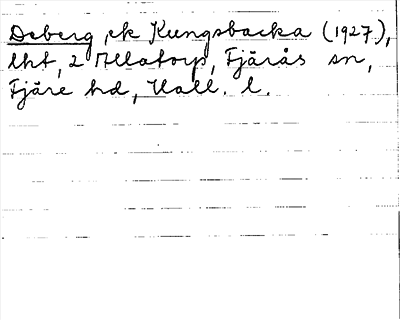 Deberg, ek Kungsbacka (1927),
lht, 2 Allatorp, Fjärås sn,
Fjäre hd, Hall. l.